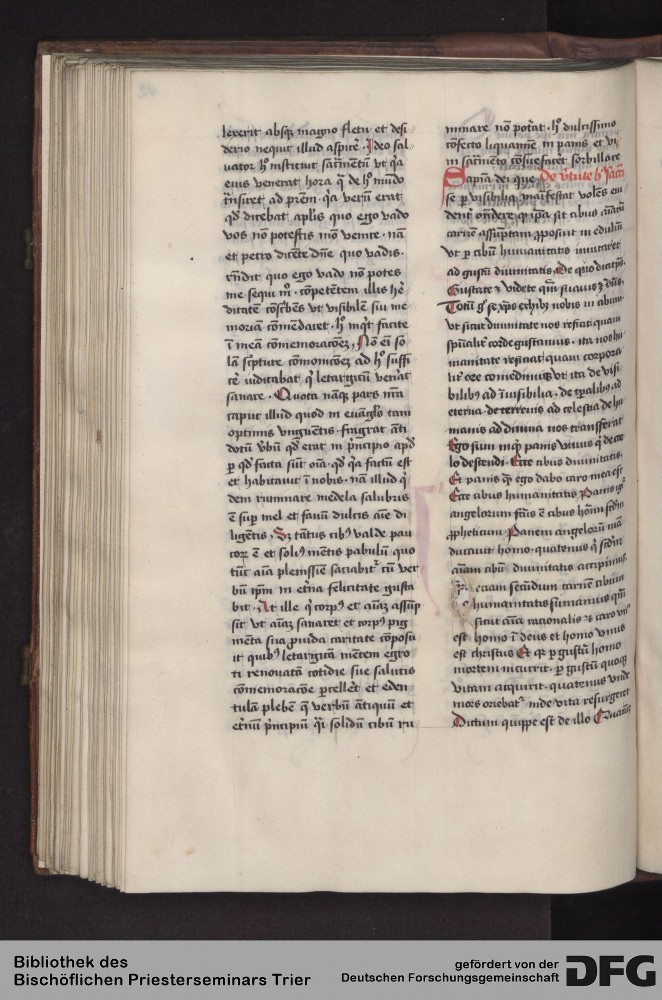 lexerit absqȝ magno fletu et desi
derio nequit illud aspicẽ. Ideo sal
uator h᷒ instituit sacr̃mẽtũ vt q̃a
eius venerat hora q̃ de h᷒ mũdo
trãsiret ad prẽm. q̃a verũ erat
qd̃ dicebat aplĩs quo ego vado
vos nõ potestis mõ venire. nã
et petro dicẽte dñe quo vadis.
rñdit quo ego vado nõ potes
me sequi mõ. cõpetẽtem illis hẽ
ditatẽ cõscribẽs vt visibilẽ sui me
moriã cõmẽdaret. h᷒ inq̃t facite
ĩ meã cõmemoracõez. Nõ eĩ so
lã scripture cõmonicõez ad h᷒ suffi
cẽ vidicabat q̃ letargicũ veñat
sanare. Quota nãq̃ pars nr̃m
caput illud quod in euãgl̃o tam
optimis vnguentis fragrat ãti
dotũ vbũ qd̃ erat in p̃ncipio apd̃
p qd̃ facta sũt oĩa. qd̃ q̃a factũ est
et habitauit ĩ nobis. nã illud q̃
dem ruminare medela salubris
ẽ sup mel et fauũ dulcis aĩe di
ligẽtis. Sȝ tãtus cibȝ valde pau
corȝ ẽ et soliȝ mẽtis pabulũ quo
tũc aĩa plenissiẽ saciabit᷑ cũ ver
bũ ip̃m in et̃na felicitate gusta
bit. At ille q̃ corpȝ et aĩaȝ assũp
sit vt aĩaȝ sanaret et corpȝ pig
mẽta sua p̃uida caritate cõposu
it quibȝ letargicã mẽtem egro
ti renouatã cotidie sue salutis
cõmemoracõe pcelleret et eden
tulã plebẽ q̃ verbũ ãtiquũ et
et̃nũ p̃ncipiũ q̃si solidũ cibũ ru
minare nõ pot̃at. h᷒ dulcissimo
cõfecto liquamĩe in panis et vi
ni sacr̃mẽto cõsuefaceret sorbillare
Sapĩa dei que De v̓tute h᷒ sac̃ti
se p visibilia mãifestat volẽs eui
dent᷑ oñdere q̃ ip̃a sit cibus aĩarũ
carnẽ assũptam p̃posuit in edulium
vt p cibũ humanitatis inuitaret
ad gustũ diuinitatis. De quo dicit ps.
Gustate ⁊ videte qm̃ suauis ẽ dñs.
Totũ gͦ se xp̃s exhibȝ nobis in cibum
vt sicut diuinitate nos reficit quam
spũalit᷑ corde gustamus. ita nos hu
manitate reficiat quam corpora
lit᷑ ore comedimusqȝ vt ita de visi
bilibȝ ad ĩuisibilia. de tp̃alibȝ ad
eterna. de terrenis ad celestia de hu
manis ad diuina nos transferat
Ego sum inq̃t panis viuus q̃ de ce
lo descendi. Ecce cibus diuinitatis.
Et panis qẽ ego dabo caro mea est
Ecce cibus humanitatis Panis gͦ
angelorum factus ẽ cibus hõim scd̃m
ꝓpheticum Panem angelorũ mã
ducauit homo. quatenus q̃ scd̃m
aĩam cibũ diuinitatis accipimus
eciam secundum carnẽ cibum
humanitatis sumamus qm̃
sicut aĩa racionalis ⁊ caro vnȝ
est homo ĩ deus et homo vnus
est christus Et q̃ p gustũ homo
mortem incurrit. p gustũ quoqȝ
vitam acquirit. quatenus vnde
mors oriebat᷑ inde vita resurgeret
Dictum quippe est de illo
Bibliothek des
Bischöflichen Priesterseminars Trier
gefördert von der
Deutschen Forschungsgemeinschaft DFG